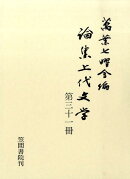 萬葉七曜会編
論集上代文学
第三十一冊
笠間書院刊